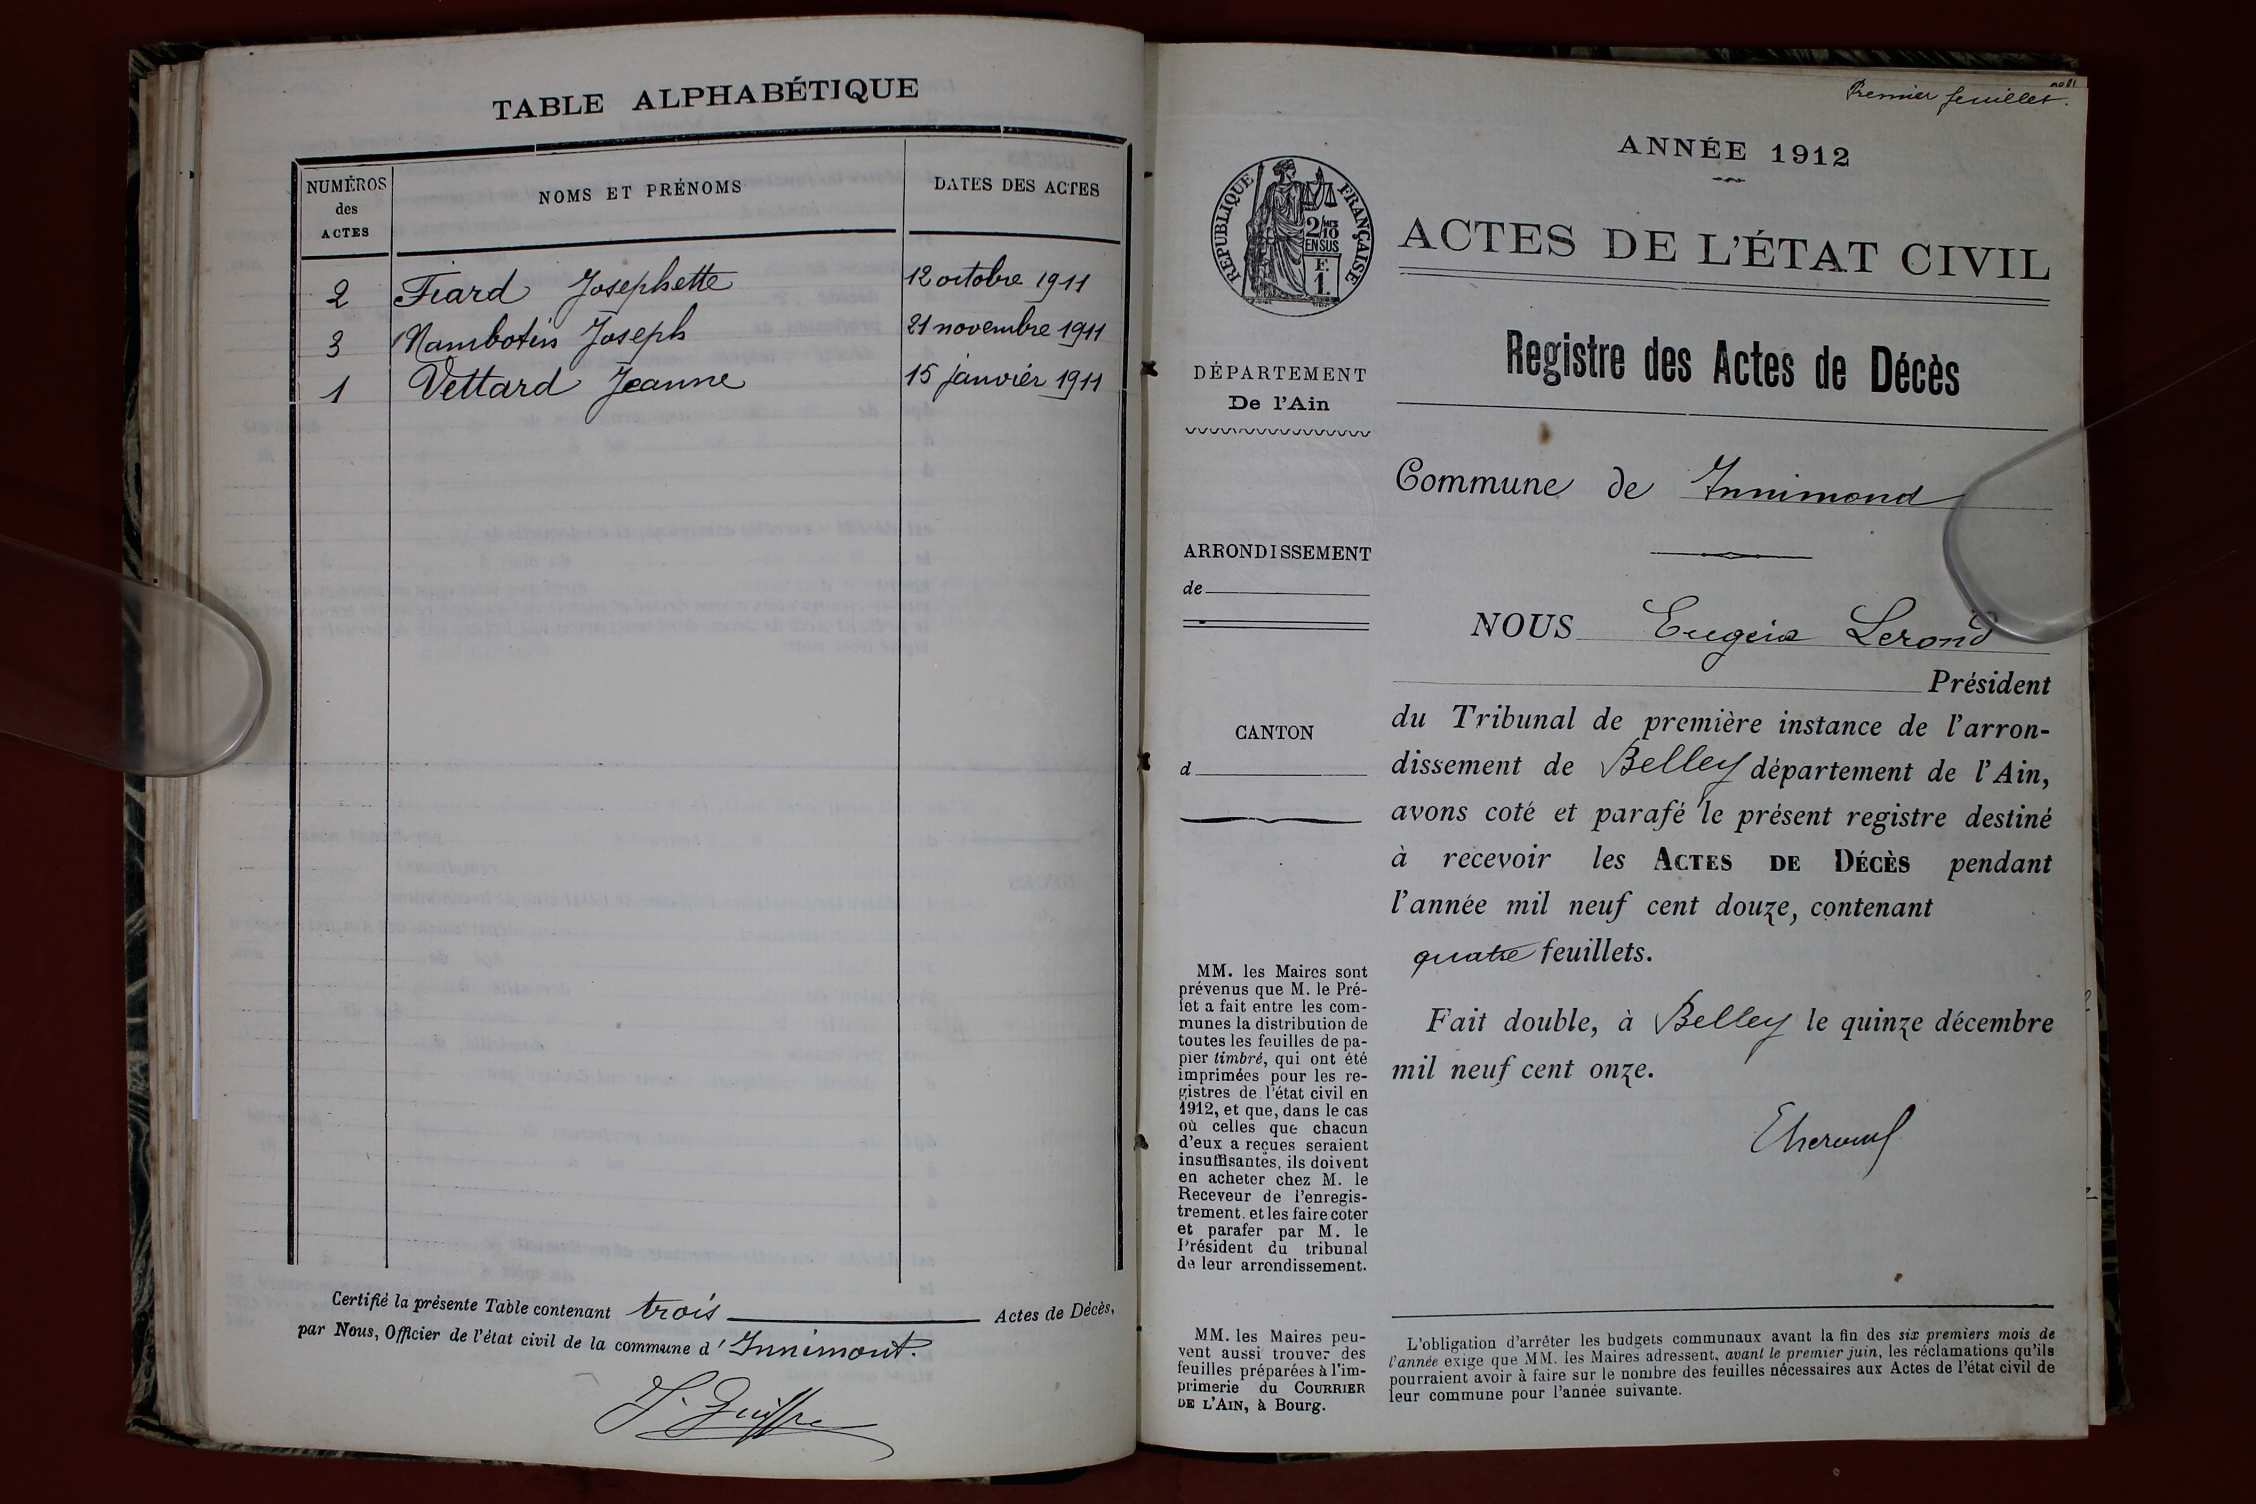 TABLE ALPHABÉTIQUE
NUMÉROS des ACTES
NOMS ET PRÉNOMS
DATES DES ACTES
2 Fiard Josephette 12 octobre 1911
3 Nambotin Joseph 21 novembre 1911
1 Vettard Jeanne 15 janvier 1911
Certifié la présente Table contenant trois Actes de Décès,
par Nous, Officier de l'état civil de la commune d' Innimont.
Premier feuillet.
ANNÉE 1912
RÉPUBLIQUE FRANÇAISE
2/10
EN SUS
F.
1.
ACTES DE L'ÉTAT CIVIL
Registre des Actes de Décès
DÉPARTEMENT
De l'Ain
Commune de Innimond
ARRONDISSEMENT
de
NOUS Eugène Lerond
Président
du Tribunal de première instance de l'arron-
dissement de Belley département de l'Ain,
avons coté et parafé le présent registre destiné
à recevoir les ACTES DE DÉCÈS pendant
l'année mil neuf cent douze, contenant
quatre feuillets.
Fait double, à Belley le quinze décembre
mil neuf cent onze.
CANTON
d
MM. les Maires sont
prévenus que M. le Pré-
fet a fait entre les com-
munes la distribution de
toutes les feuilles de pa-
pier timbré, qui ont été
imprimées pour les re-
gistres de l'état civil en
1912, et que, dans le cas
où celles que chacun
d'eux a reçues seraient
insuffisantes, ils doivent
en acheter chez M. le
Receveur de l'enregis-
trement. et les faire coter
et parafer par M. le
Président du tribunal
de leur arrondissement.
MM. les Maires peu-
vent aussi trouver des
feuilles préparées à l'im-
primerie du COURRIER
DE L'AIN, à Bourg.
L'obligation d'arrêter les budgets communaux avant la fin des six premiers mois de
l'année exige que MM. les Maires adressent, avant le premier juin, les réclamations qu'ils
pourraient avoir à faire sur le nombre des feuilles nécessaires aux Actes de l'état civil de
leur commune pour l'année suivante.